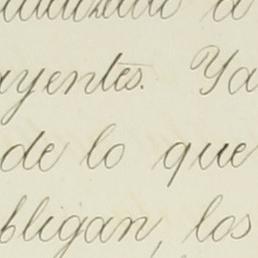 a
ayentes. Ya
de lo que
bligan, los